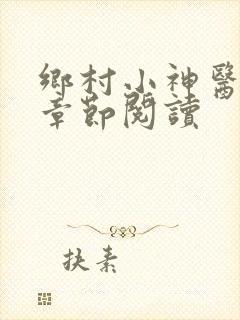 鄉村小神醫
章節閱讀
扶素